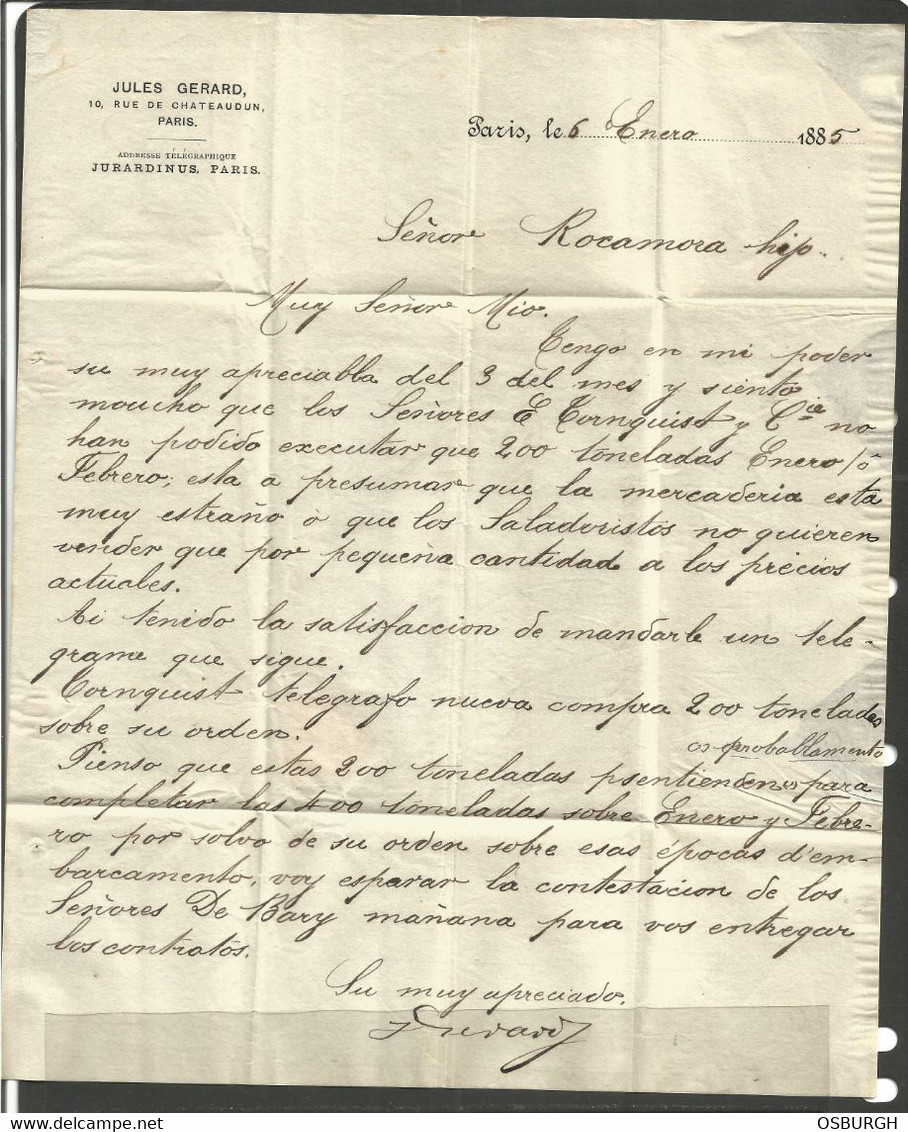 JULES GERARD,
10, RUE DE CHATEAUDUN,
PARIS.
ADDRESSE TÉLÉGRAPHIQUE
JURARDINUS, PARIS.
Paris, le 6 Enero 1885
Señor Rocamora hijo..
Muy Señor Mio.
Tengo en mi poder
su muy apreciabla del 3 del mes y siento
moucho que los Señores E Tornquist y Cie no
han podido executar que 200 toneladas Enero/ó
Febrero; esta a presumar que la mercaderia esta
muy estraño ò que los Saladoristos no quieren
vender que por pequeña cantidad a los precios
actuales.
Ai tenido la satisfaccion de mandarle un tele-
grame que sigue.
Tornquist telégrafo nueva compra 200 tonelades
sobre su orden.
probablamento
Pienso que estas 200 toneladas para
completar las 400 toneladas sobre Enero y Febre-
ro por solvo de su orden sobre esas épocas d'em-
barcamento, voy esperar la contestacion de los
Señores De Bary mañana para vos entregar
los contratos.
Su muy apreciado.